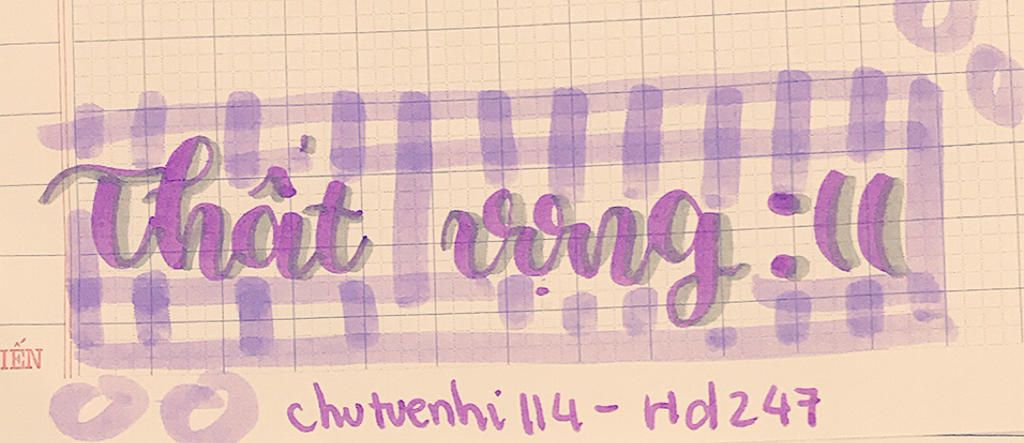 Thất vọng :((
IẾN
chutuenhi 114 - Hd247